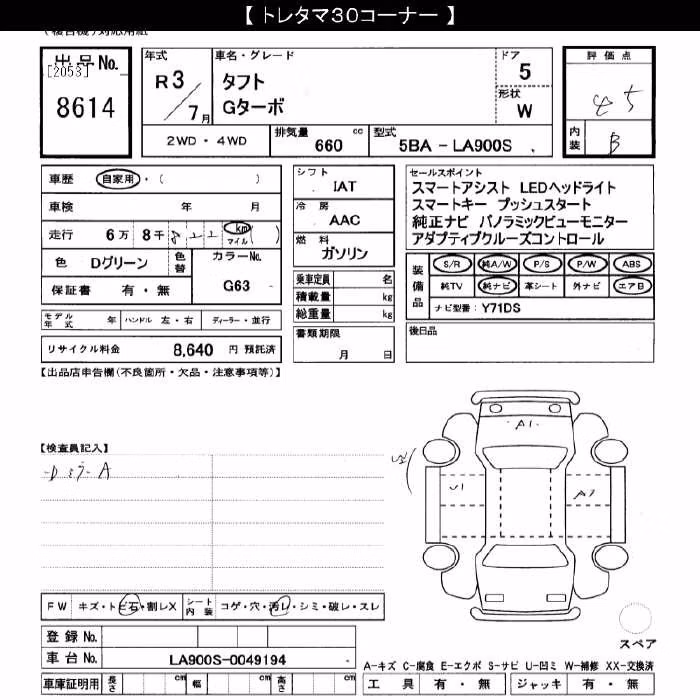 【 トレタマ30コーナー 】
出品No.
[2053]
8614
年式
R 3／7月
車名・グレード
タフト
Gターボ
ドア
5
形状
W
評価点
4.5
内装
B
2WD・4WD
排気量 660 cc
型式 5BA - LA900S
車歴 自家用・( )
車検 年 月
走行 6万 8千 km マイル ( )
色 Dグリーン
色替
カラーNo.
G63
保証書 有・無
モデル年式 年
ハンドル 左・右
ディーラー・並行
リサイクル料金 8,640 円 預託済
シフト
IAT
冷房
AAC
燃料
ガソリン
乗車定員 名
積載量 kg
総重量 kg
書類期限
月 日
セールスポイント
スマートアシスト LEDヘッドライト
スマートキー プッシュスタート
純正ナビ パノラミックビューモニター
アダプティブクルーズコントロール
装備品
S/R 純A/W P/S P/W ABS
純TV 純ナビ 革シート 外ナビ エアB
ナビ型番: Y71DS
後日品
【出品店申告欄(不良箇所・欠品・注意事項等)】
【検査員記入】
A1
U1
A1
FW キズ・トビ石・割レX
シート内装 コゲ・穴・汚レ・シミ・破レ・スレ
登録 No.
車台 No. LA900S-0049194
車庫証明用 長さ cm 幅 cm 高さ cm
スペア
A-キズ C-腐食 E-エクボ S-サビ U-凹ミ W-補修 XX-交換済
工具 有・無 ジャッキ 有・無